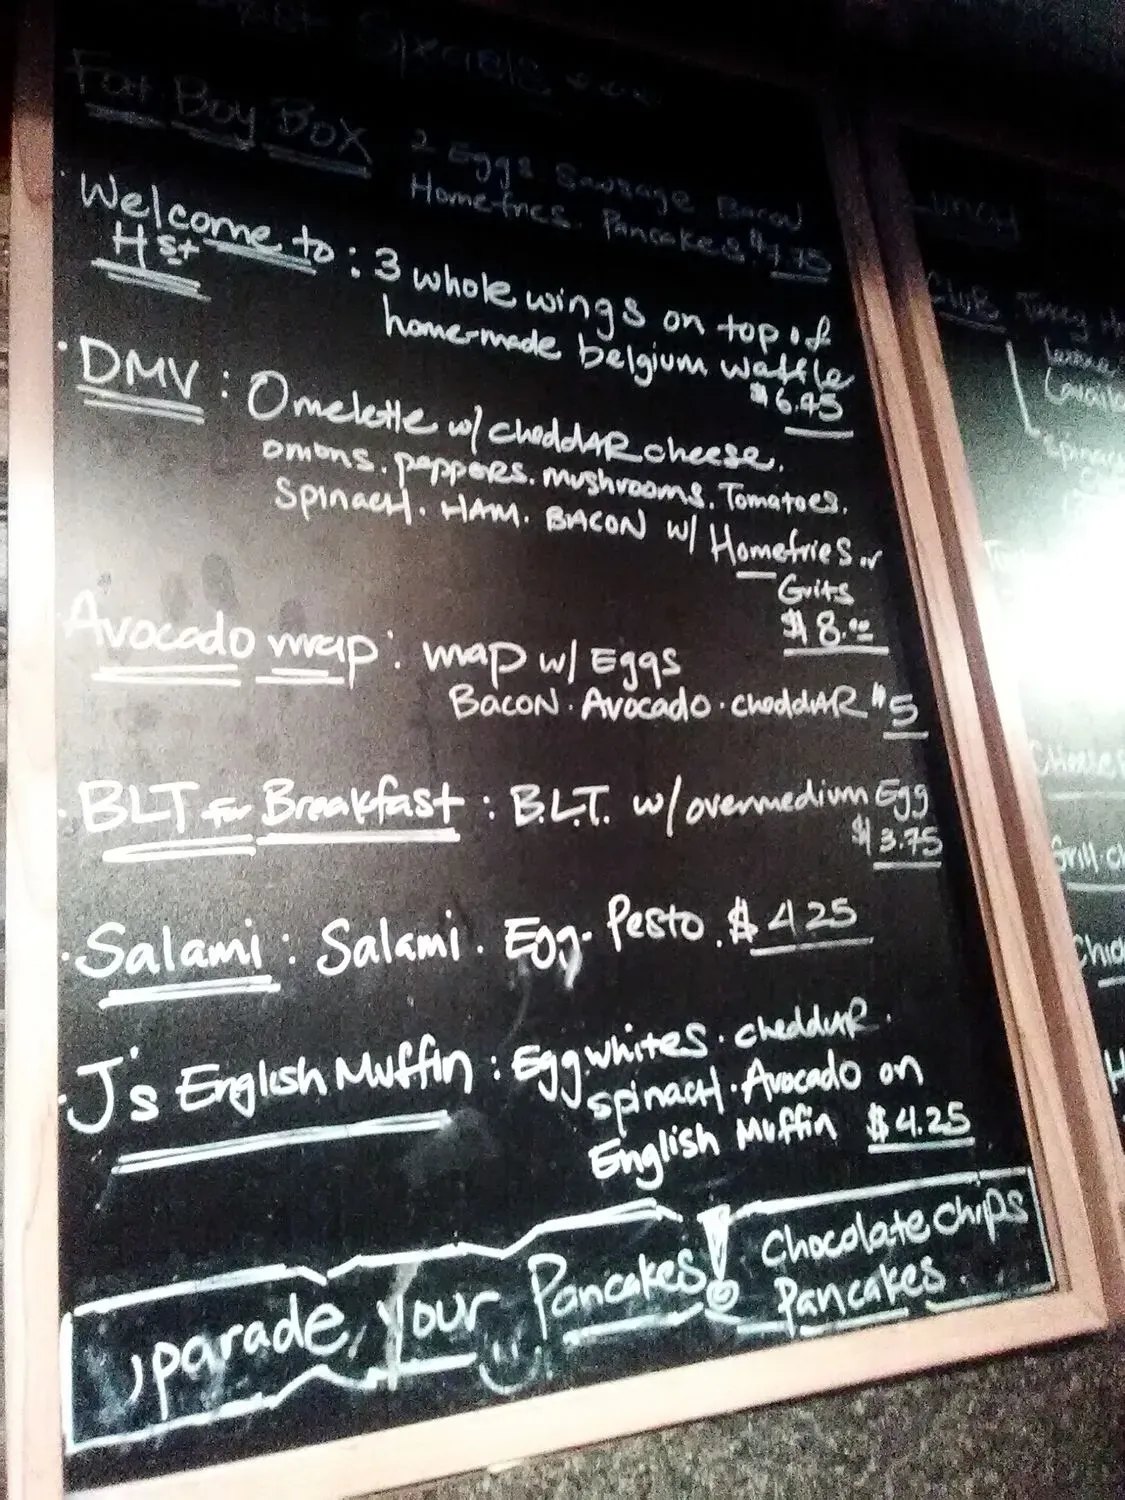 Specials
Fat Boy Box 2 Eggs Sausage Bacon
Homefries. Pancakes $4.75
Welcome to : 3 whole wings on top of
H st home-made belgium waffle
$6.45
DMV : Omelette w/ cheddAR cheese.
onions. peppers. mushrooms. Tomatoes.
Spinach. HAM. BACON w/ Homefries or
Grits
$8.00
Avocado wrap : wrap w/ Eggs
BACON. Avocado. cheddAR $5
BLT For Breakfast : B.L.T. w/ overmedium Egg
$3.75
Salami : Salami. Egg. Pesto. $4.25
J's English Muffin : Eggwhites. cheddar.
spinach. Avocado on
English Muffin $4.25
uparade your Pancakes! Chocolate chips
Pancakes.
Lunch
Club Turkey
Spinach
Cheese
Grill